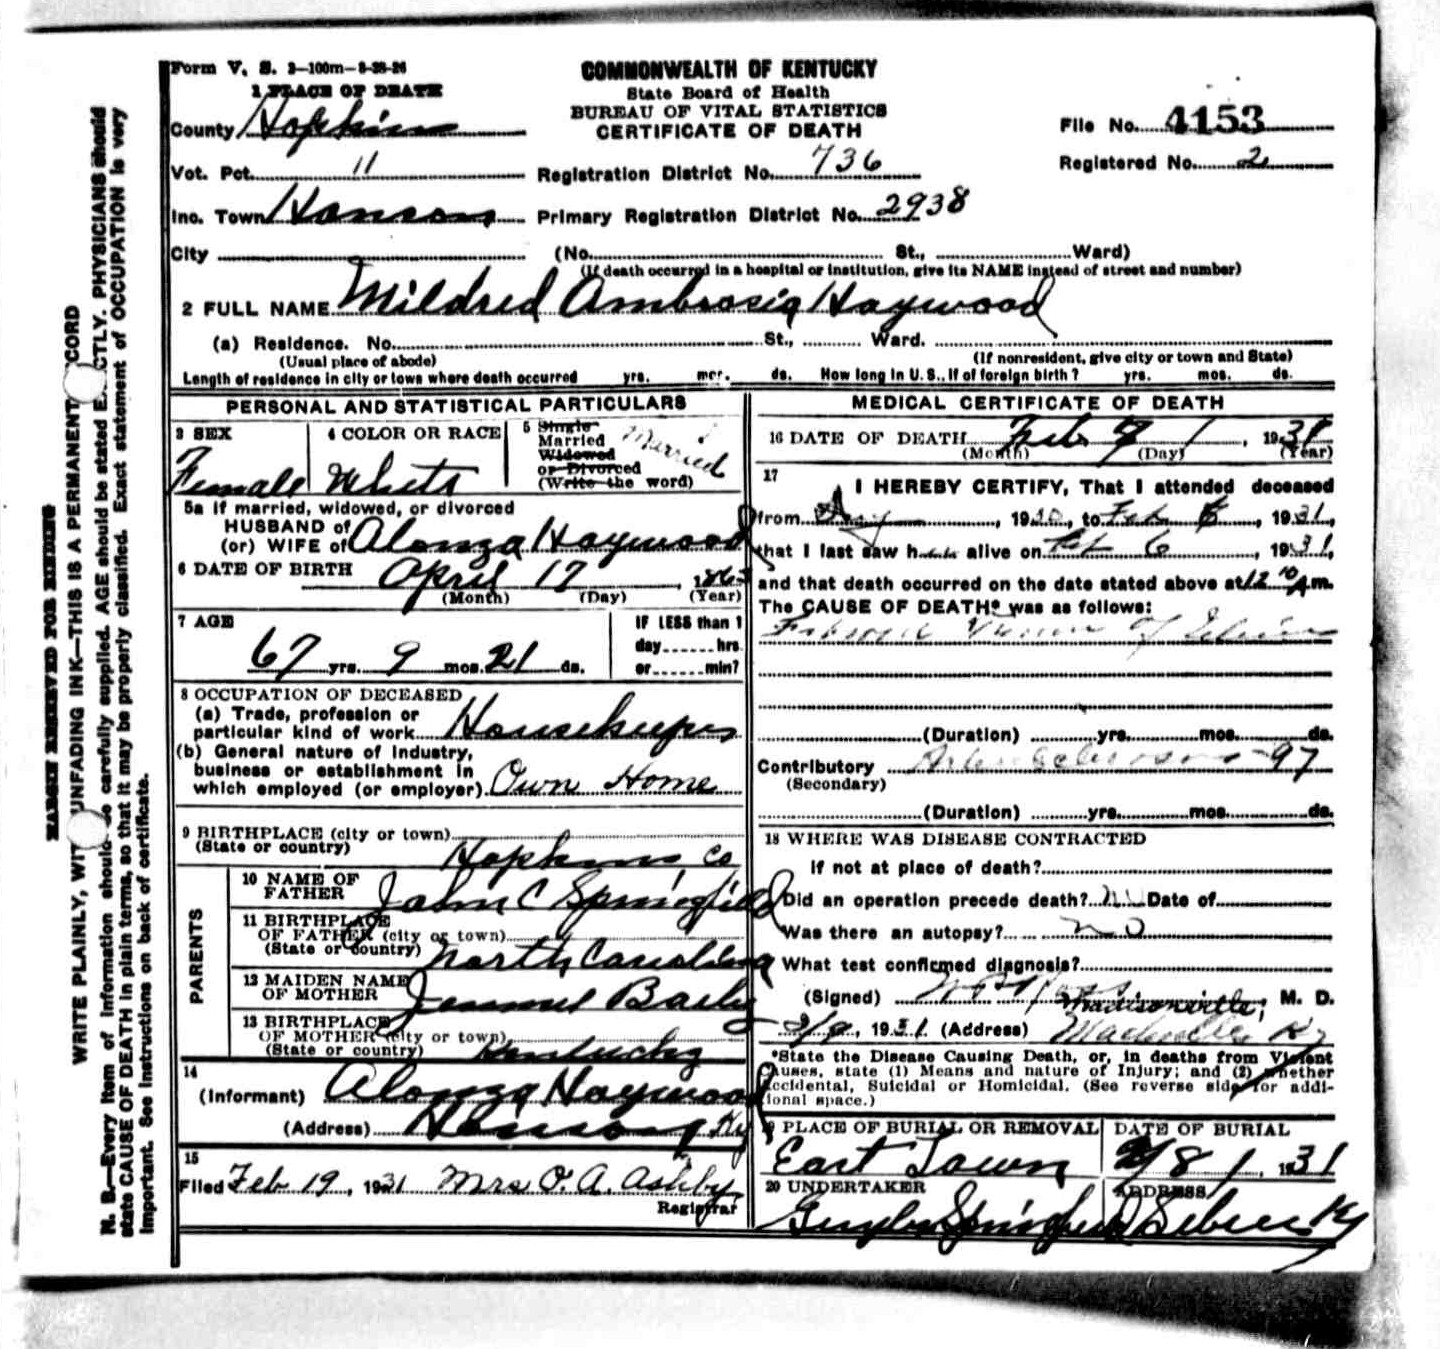 Form V. S. 2-100m-8-28-26
COMMONWEALTH OF KENTUCKY
State Board of Health
BUREAU OF VITAL STATISTICS
CERTIFICATE OF DEATH
1 PLACE OF DEATH
County Hopkins
File No. 4153
Vot. Pct. 11
Registration District No. 736
Registered No. 2
Inc. Town Hanson
Primary Registration District No. 2938
City (No. St., Ward)
(If death occurred in a hospital or institution, give its NAME instead of street and number)
2 FULL NAME Mildred Ambrosia Haywood
(a) Residence. No. St., Ward.
(Usual place of abode) (If nonresident, give city or town and State)
Length of residence in city or town where death occurred yrs. mos. ds. How long in U. S., if of foreign birth? yrs. mos. ds.
PERSONAL AND STATISTICAL PARTICULARS
3 SEX
Female
4 COLOR OR RACE
White
5 Single
Married
Widowed
or Divorced
(Write the word)
Married
5a If married, widowed, or divorced
HUSBAND of
(or) WIFE of Alonza Haywood
6 DATE OF BIRTH April 17, 1863
(Month) (Day) (Year)
7 AGE
67 yrs. 9 mos. 21 ds.
IF LESS than 1
day......hrs
or......min?
8 OCCUPATION OF DECEASED
(a) Trade, profession or
particular kind of work Housekeeper
(b) General nature of Industry,
business or establishment in
which employed (or employer) Own Home
9 BIRTHPLACE (city or town)
(State or country) Hopkins Co
PARENTS
10 NAME OF
FATHER John C Springfield
11 BIRTHPLACE
OF FATHER (city or town)
(State or country) North Carolina
12 MAIDEN NAME
OF MOTHER Baily
13 BIRTHPLACE
OF MOTHER (city or town)
(State or country) Kentucky
14
(Informant) Alonza Haywood
(Address) Hanson Ky
15
Filed Feb 19, 1931 Mrs O. A. Ashby
Registrar
MEDICAL CERTIFICATE OF DEATH
16 DATE OF DEATH Feb 7, 1931
(Month) (Day) (Year)
17
I HEREBY CERTIFY, That I attended deceased
from , 1930, to Feb 6, 1931,
that I last saw her alive on Feb 6, 1931,
and that death occurred on the date stated above at 12 10 A m.
The CAUSE OF DEATH* was as follows:
of
(Duration) yrs. mos. ds.
Contributory 97
(Secondary)
(Duration) yrs. mos. ds.
18 WHERE WAS DISEASE CONTRACTED
If not at place of death?
Did an operation precede death? no Date of
Was there an autopsy? no
What test confirmed diagnosis?
(Signed) Madisonville, M. D.
2/9, 1931 (Address) Ky
*State the Disease Causing Death, or, in deaths from Violent
Causes, state (1) Means and nature of Injury; and (2) whether
Accidental, Suicidal or Homicidal. (See reverse side for addi-
tional space.)
19 PLACE OF BURIAL OR REMOVAL
East Lawn
DATE OF BURIAL
2/8, 1931
20 UNDERTAKER
Springfield
ADDRESS
Sebree Ky
MARGIN RESERVED FOR BINDING
WRITE PLAINLY, WITH UNFADING INK—THIS IS A PERMANENT RECORD
N. B.—Every item of information should be carefully supplied. AGE should be stated EXACTLY. PHYSICIANS should
state CAUSE OF DEATH in plain terms, so that it may be properly classified. Exact statement of OCCUPATION is very
important. See instructions on back of certificate.